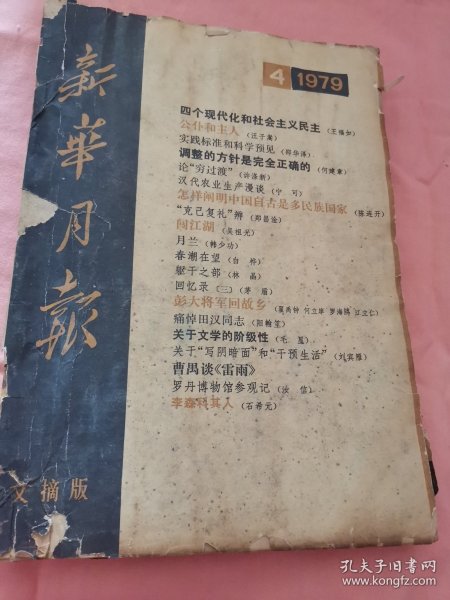 新华月報
文摘版
4 1979
四个现代化和社会主义民主（王福如）
公仆和主人（汪子嵩）
实践标准和科学预见（郑华泽）
调整的方针是完全正确的（何建章）
论“穷过渡”（许涤新）
汉代农业生产漫谈（宁可）
怎样阐明中国自古是多民族国家（陈连开）
“克己复礼”辨（郑昌淦）
闯江湖（吴祖光）
月兰（韩少功）
春潮在望（白桦）
躯干之部（林晶）
回忆录（三）（茅盾）
彭大将军回故乡（翟禹钟 何立庠 罗海鸥 江立仁）
痛悼田汉同志（阳翰笙）
关于文学的阶级性（毛星）
关于“写阴暗面”和“干预生活”（刘宾雁）
曹禺谈《雷雨》
罗丹博物馆参观记（汝信）
李森科其人（石希元）
孔夫子旧书网
www.kongfz.com